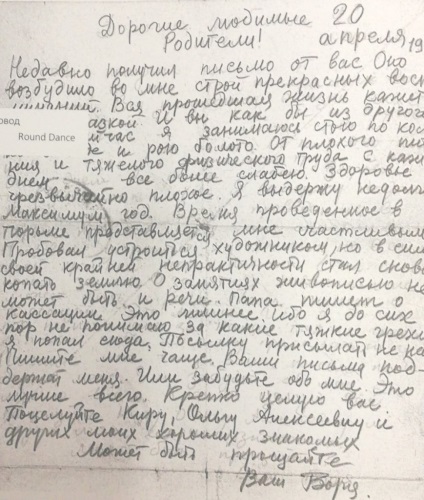 Дорогие любимые 20
Родители! апреля 19
Недавно получил письмо от вас Оно
возбудило во мне строй прекрасных вос
Вся прошедшая жизнь кажет
овод
азкой И вы как бы из другого
Round Dance
йчас я занимаюсь стою по кол
е и рою болото. От плохого пи
ния и тяжелого физического труда с кажд
днем все более слабею. Здоровье
чрезвычайно плохое. Я выдержу недолг
Максимум год. Время проведенное в
тюрьме представляется мне счастливым
Пробовал устроиться художником, но в силу
своей крайней непрактичности стал снова
копать землю О занятиях живописью не
может быть и речи. Папа пишет о
кассации Это лишнее ибо я до сих
пор не понимаю за какие тяжкие грехи
я попал сюда. Посылку присылать не на
Пишите мне чаще. Ваши письма под-
держат меня. Или забудьте обо мне. Это
лучше всего. Крепко целую вас
Поцелуйте Киру, Ольгу Алексеевну и
других моих хороших знакомых
Может быть прощайте
Ваш Боря.